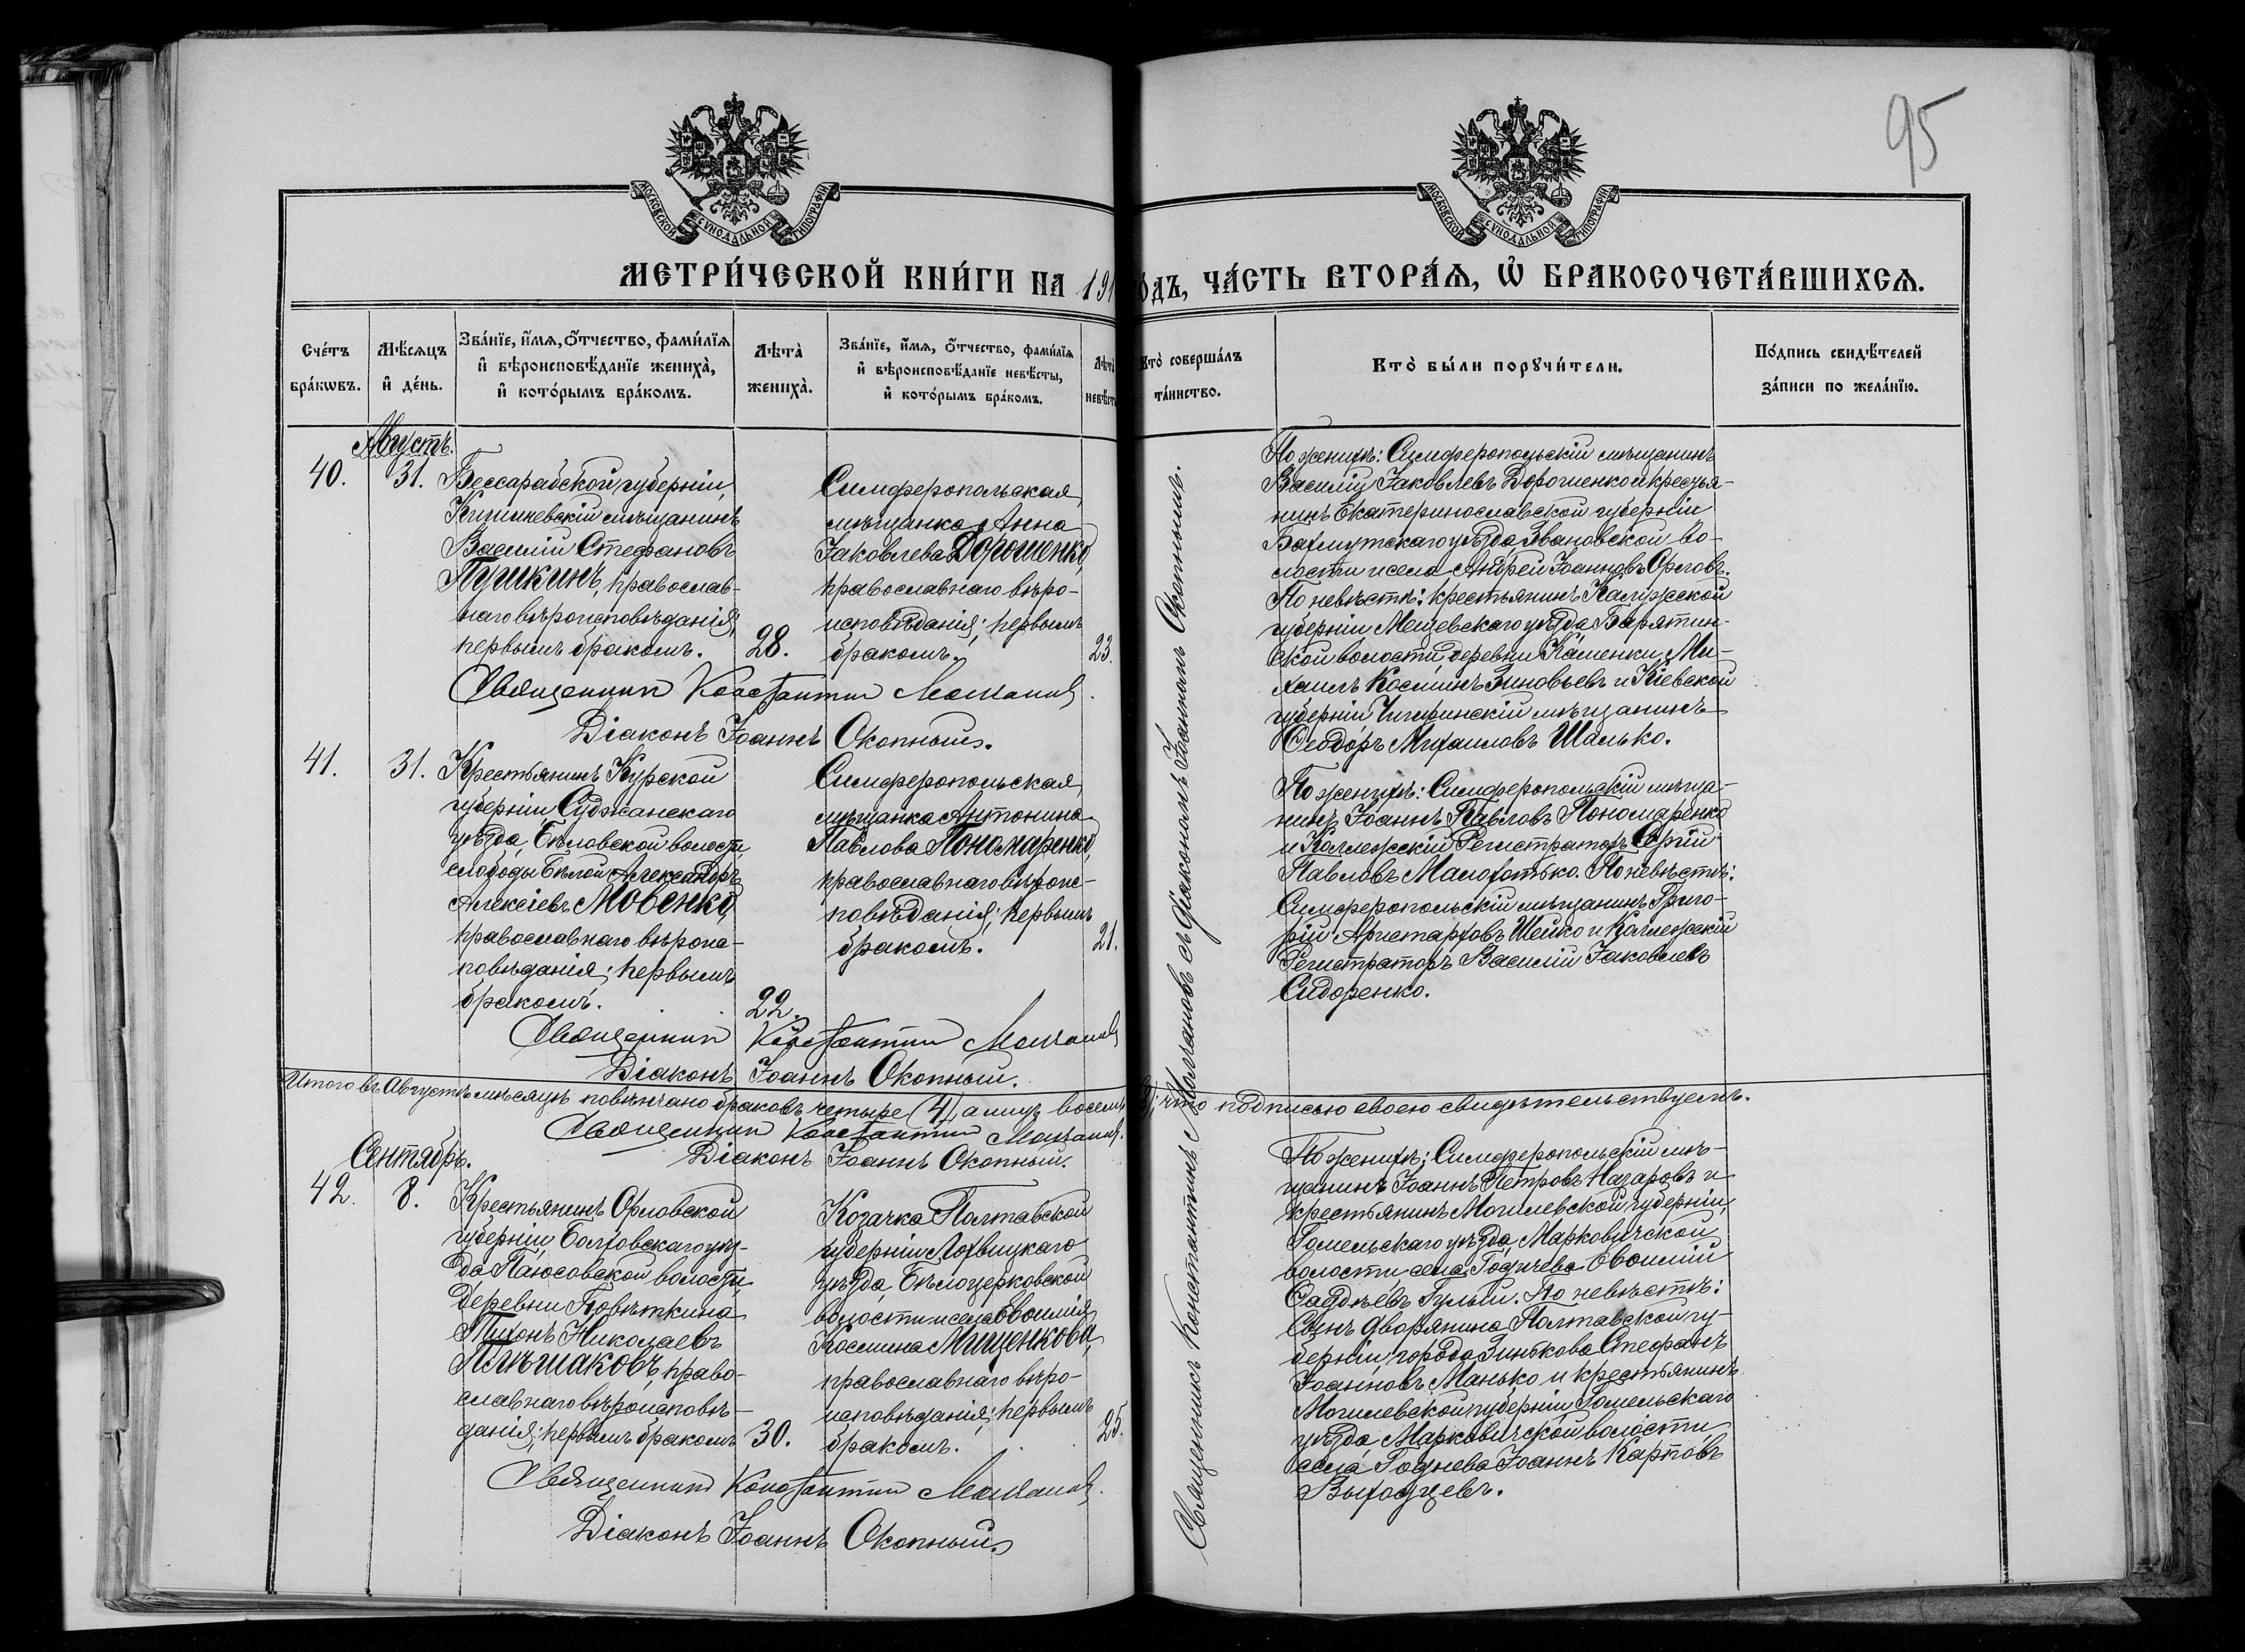 95
МОСКОВСКОЙ СѴНОДАЛЬНОЙ ТИПОГРАФІИ
МОСКОВСКОЙ СѴНОДАЛЬНОЙ ТИПОГРАФІИ
МЕТРИ́ЧЕСКОЙ КНИ́ГИ НА 191
о́дъ, ЧА́СТЬ ВТОРА́Ѧ, Ѽ БРАКОСОЧЕТА́ВШИХСѦ.
Сче́тъ бра́кѡвъ.
Мѣ́сѧцъ и҆ де́нь.
Зва́нїе, и҆́мѧ, ѻ҆́тчество, фами́лїѧ и҆ вѣроисповѣ́данїе жениха̀, и҆ кото́рымъ бра́комъ.
Лѣта̀ жениха̀.
Зва́нїе, и҆́мѧ, ѻ҆́тчество, фами́лїѧ и҆ вѣроисповѣ́данїе невѣ́сты, и҆ кото́рымъ бра́комъ.
Лѣта̀ невѣ́ст
Кто̀ соверша́лъ та́инство.
Кто̀ бы́ли порꙋчи́тели.
По́дпись свидѣ́телей за́писи по жела́нїю.
Августъ.
40.
31.
Бессарабской губерніи,
Кишиневскій мѣщанинъ
Василій Стефановъ
Пушкинъ, православ-
наго вѣроисповѣданія;
первымъ бракомъ.
28.
Симферопольская
мѣщанка Анна
Іаковлева Дорошенко,
православнаго вѣро-
исповѣданія; первымъ
бракомъ.
23.
Священникъ Константинъ Молчановъ.
Діаконъ Іоаннъ Окопный.
По женихѣ: Симферопольскій мѣщанинъ
Василій Іаковлевъ Дорошенко и крестья-
нинъ Екатеринославской губерніи
Бахмутскаго уѣзда, Звановской во-
лости и села Андрей Іоанновъ Орловъ.
По невѣстѣ: крестьянинъ Калужской
губерніи Мещевскаго уѣзда Барятин-
ской волости, деревни Каменки Ми-
хаилъ Косминъ Зиновьевъ и Кіевской
губерніи Чигиринскій мѣщанинъ
Ѳеодоръ Михаиловъ Шалько.
41.
31.
Крестьянинъ Курской
губерніи Суджанскаго
уѣзда, Бѣловской волости
слободы Бѣлой Александръ
Алексіевъ Мовенко,
православнаго вѣроис-
повѣданія; первымъ
бракомъ.
22.
Симферопольская
мѣщанка Антонина
Павлова Пономаренко,
православнаго вѣроис-
повѣданія; первымъ
бракомъ.
21.
Священникъ Константинъ Молчановъ
Діаконъ Іоаннъ Окопный.
По женихѣ: Симферопольскій мѣща-
нинъ Іоаннъ Павловъ Пономаренко
и Коллежскій Регистраторъ Сергій
Павловъ Малохатько. По невѣстѣ:
Симферопольскій мѣщанинъ Григо-
рій Аристарховъ Шейко и Коллежскій
Регистраторъ Василій Іаковлевъ
Сидоренко.
Итого въ Августѣ мѣсяцѣ повѣнчано браковъ четыре (4), а лицъ восемь
8; что подписью своею свидѣтельствуемъ.
Священникъ Константинъ Молчановъ.
Діаконъ Іоаннъ Окопный.
Сентябрь.
42.
8.
Крестьянинъ Орловской
губерніи Болховскаго уѣз-
да Паюсовской волости,
деревни Повѣткина
Тихонъ Николаевъ
Плѣшаковъ, право-
славнаго вѣроисповѣ-
данія; первымъ бракомъ
30.
Козачка Полтавской
губерніи Лохвицкаго
уѣзда, Бѣлоцерковской
волости и села Евѳимія
Космина Мищенкова,
православнаго вѣро-
исповѣданія; первымъ
бракомъ.
25.
Священникъ Константинъ Молчановъ.
Діаконъ Іоаннъ Окопный.
По женихѣ: Симферопольскій мѣ-
щанинъ Іоаннъ Петровъ Назаровъ и
крестьянинъ Могилевской губерніи,
Гомельскаго уѣзда, Марковичской
волости, села Годичева Евѳимій
Ѳаддѣевъ Гулый. По невѣстѣ:
Сынъ дворянина Полтавской гу-
берніи, города Зинькова Стефанъ
Іоанновъ Манько и крестьянинъ
Могилевской губерніи Гомельскаго
уѣзда, Марковичской волости,
села Іоаннъ Карповъ
Выходцевъ.
Священникъ Константинъ Молчановъ съ Діакономъ Іоанномъ Окопнымъ.